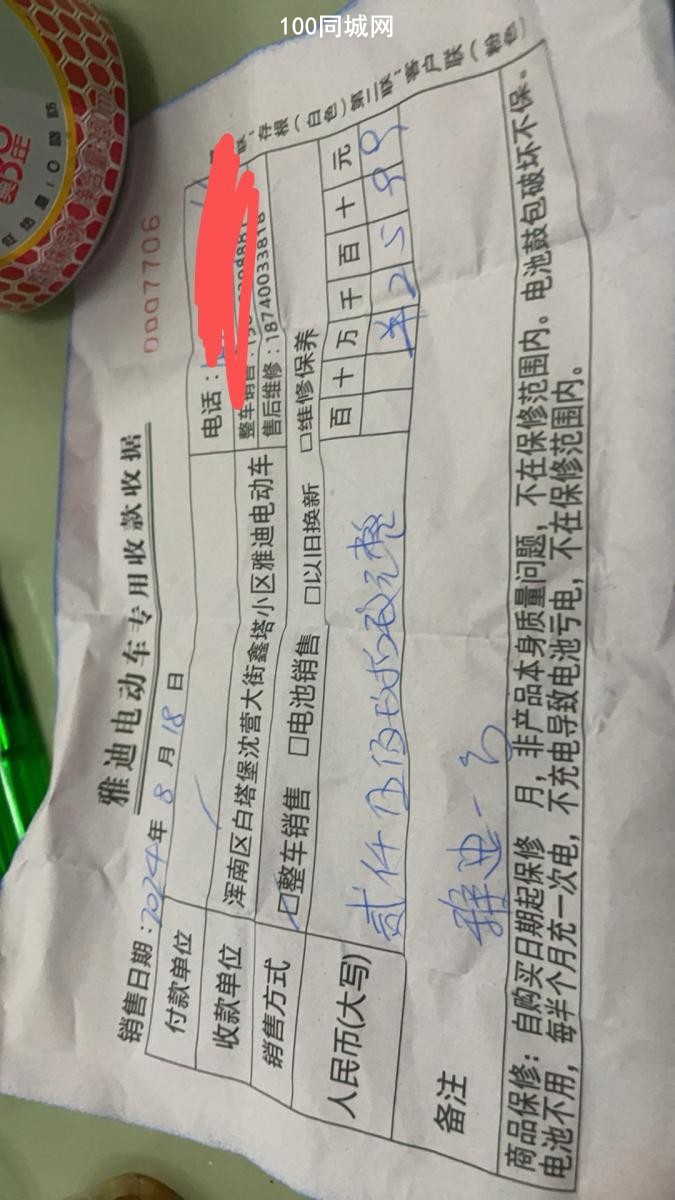 100同城网
0007706
雅迪电动车专用收款收据
销售日期：2024年8月18日
付款单位
电话：
收款单位 浑南区白塔堡沈营大街鑫塔小区雅迪电动车
整车销售：
售后维修：18740033818
销售方式 □整车销售 □电池销售 □以旧换新 □维修保养
人民币(大写) 贰仟伍佰
元整
百十万千百十元
¥2599
备注
雅迪一
商品保修：自购买日期起保修 月，非产品本身质量问题，不在保修范围内。电池鼓包破坏不保。
电池不用，每半个月充一次电，不充电导致电池亏电，不在保修范围内。
联：存根（白色）第二联：客户联（粉色）
低热量10脂肪